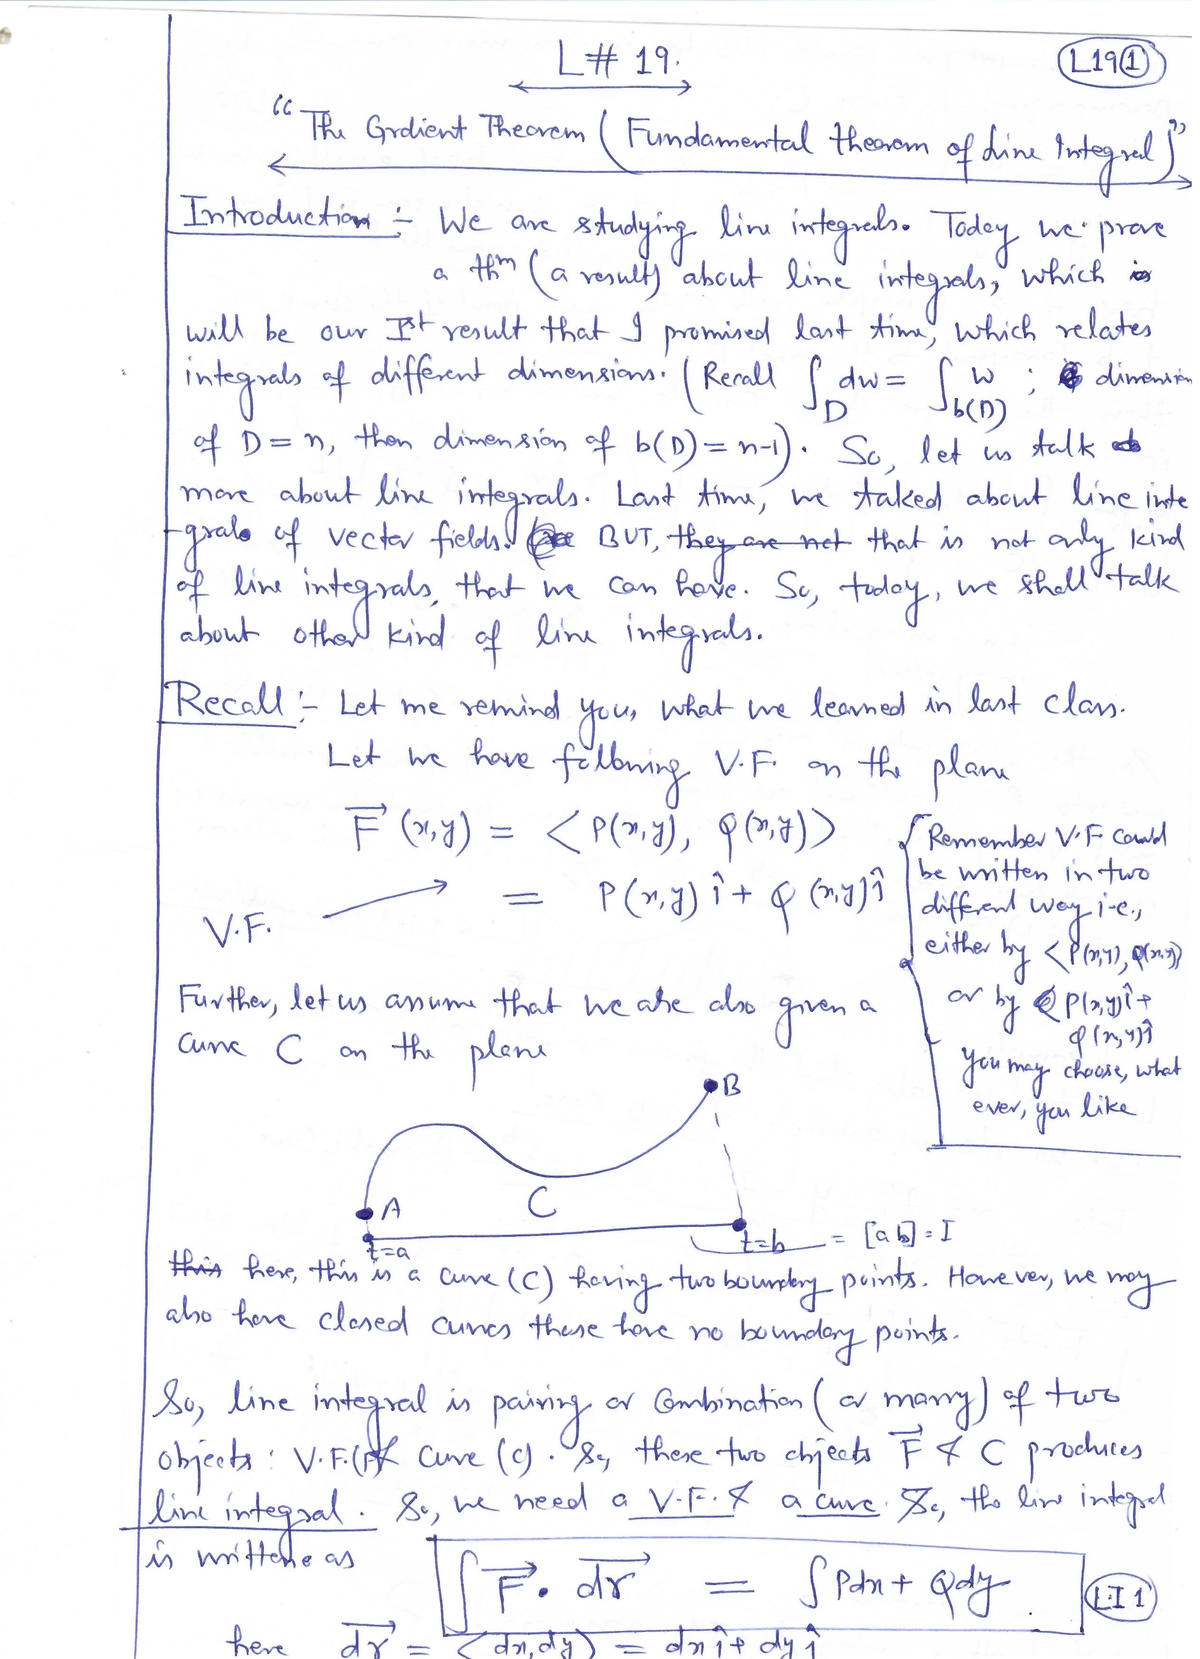 L# 19.
L19①
“The Grdient Theorem (Fundamental theorem of Line Integral)”
Introduction :- We are studying line integrals. Today we prove
a thm (a result) about line integrals, which is
will be our Ist result that I promised last time, which relates
integrals of different dimensions. (Recall ∫_D dw = ∫_b(D) w ; dimension
of D = n, then dimension of b(D) = n-1). So, let us talk
more about line integrals. Last time, we taked about line inte
-grals of vector fields. BUT, they are not that is not only kind
of line integrals, that we can have. So, today, we shall talk
about other kind of line integrals.
Recall :- Let me remind you, what we learned in last class.
Let we have following V.F. on the plane
F⃗ (x,y) = <P(x,y), Q(x,y)>
= P(x,y) î + Q (x,y) ĵ
V.F.
Remember V.F could
be written in two
different way i-e.,
either by <P(x,y), Q(x,y)>
or by P(x,y)î +
Q(x,y)ĵ
you may choose, what
ever, you like
Further, let us assume that we are also given a
curve C on the plane
B
A
C
t=a
t=b = [a b] = I
this here, this is a curve (C) having two boundary points. However, we may
also have closed curves these have no boundary points.
So, line integral is pairing or Combination (or marry) of two
objects : V.F.(F) & Curve (C). So, these two objects F⃗ & C produces
line integral. So, we need a V.F. & a curve. So, the line integral
is writtene as
∫ F⃗ . dr⃗ = ∫ Pdx + Qdy
L.I 1
here dr⃗ = <dx, dy> = dx î + dy ĵ